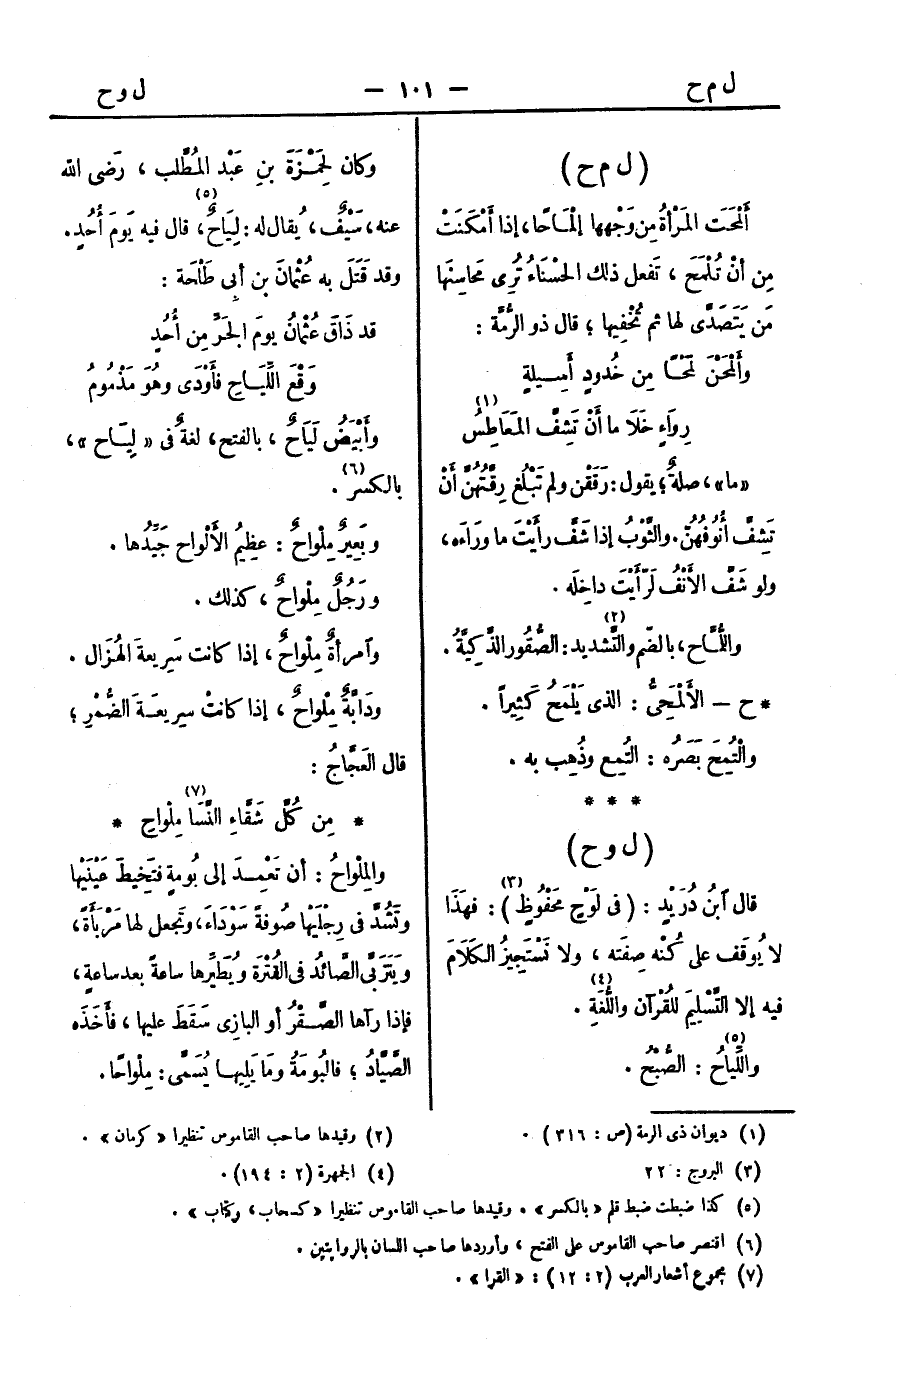 ل م ح
— ١٠١ —
ل و ح
(ل م ح)
أَلْمَحَت المَرْأةُ مِن وَجْهِها إلْمَـاحًا، إذا أَمْكَنَتْ
مِن أنْ تُلْمَحَ ، تَفعل ذلك الحَسْنَاءُ تُرِى مَحَاسِنَها
مَن يَتَصَدَّى لها ثم تُخْفِيها ؛ قال ذو الرُّمَّة :
وأَلْمَحْنَ لَمْحًا مِن خُدودٍ أَسِـيلةٍ
رِواءٍ خَلَا ما أَنْ تَشِفَّ المَعَاطِسُ (١)
«ما» ، صلةٌ ؛ يقول : رَقَقْن ولم تَبْلُغ رِقَّتُهُنَّ أَنْ
تَشِفَّ أُنُوفُهُنّ. والثَّوْبُ إذا شَفَّ رأَيْتَ ما ورَاءَه ،
ولو شَفَّ الأَنْفُ لَرَأَيْتَ داخِلَه .
واللُّمَّاح ، بالضّم والتَّشديد (٢) : الصُّقُور الذَّكِيَّةُ .
* ح – الأَلْمَحِىُّ : الذى يَلْمَحُ كَثِيراً .
والْتُمِحَ بَصَرُه : الْتُمِع وذُهِب به .
* * *
(ل و ح)
قال ٱبنُ دُرَيْدٍ : (فى لَوْحٍ مَحْفُوظٍ (٣)) : فهذَا
لا يُوقَف على كُنْه صِفَتِه ، ولا نَسْتَجِيزُ الكَلَامَ
فيه إلا التَّسْلِيمَ للقُرْآن واللُّغَةِ (٤) .
واللِّيَاحُ (٥) : الصُّبْحُ .
وكان لِحَمْـزَةَ بنِ عَبْد المُطَّلب ، رَضى الله
عنه ، سَيْفٌ ، يُقال له : لِيَاحٌ (٥) ، قال فيه يَومَ أُحُدٍ .
وقد قَتَلَ به عُثْمَانَ بن أبى طَلْحَة :
قد ذَاقَ عُثْمَانُ يومَ الجَرِّ مِن أُحُدٍ
وَقْعَ اللِّيَـاحِ فأَوْدَى وهُوَ مَذْمُومُ
وأَبْيَضُ لَيَاحٌ ، بالفتح ، لغةٌ فى « لِيَاح » ،
بالكسر (٦) .
و بَعِيرٌ مِلْواحٌ : عظِيمُ الأَلْواح جَيِّدُها .
و رَجُلٌ مِلْواحٌ ، كذلك .
وٱمرأةٌ مِلْواحٌ ، إذا كانت سَرِيعةَ الهُزَال .
ودَابَّةٌ مِلْواحٌ ، إذا كانتْ سريعـةَ الضُّمْرِ ؛
قال العَجَّاجُ :
* مِن كُلِّ شَقَّاءِ النَّسَا مِلْواحِ (٧) *
والمِلْواحُ : أن تَعْمِـدَ إلى بُومةٍ فتَخِيطَ عَيْنَيْها
وتَشُدَّ فى رِجْلَيْها صُوفةً سَوْدَاءَ، وتَجعل لها مَرْبَأَةً ،
و يَتَرَبَّى الصَّائدُ فى القُتْرَة و يُطَيِّرها ساعةً بعد ساعةٍ ،
فإذا رآها الصَّـقْرُ أو البازِى سَقَطَ عليها ، فأَخَذَه
الصَّيَّادُ ؛ فالبُومَةُ وما يَلِيهـا يُسَمَّى : مِلْواحًا .
(١) ديوان ذى الرمة (ص : ٣١٦) .
(٢) وقيدها صاحب القاموس تنظيرا « كرمان » .
(٣) البروج : ٢٢
(٤) الجمهرة (٢ : ١٩٤) .
(٥) كذا ضبطت ضبط قلم « بالكسر » . وقيدها صاحب القاموس تنظيرا « كسحاب ، وكتاب » .
(٦) اقتصر صاحب القاموس على الفتح ، وأوردها صاحب اللسان بالروايتين .
(٧) مجموع أشعار العرب (٢ : ١٢) : « القرا » .